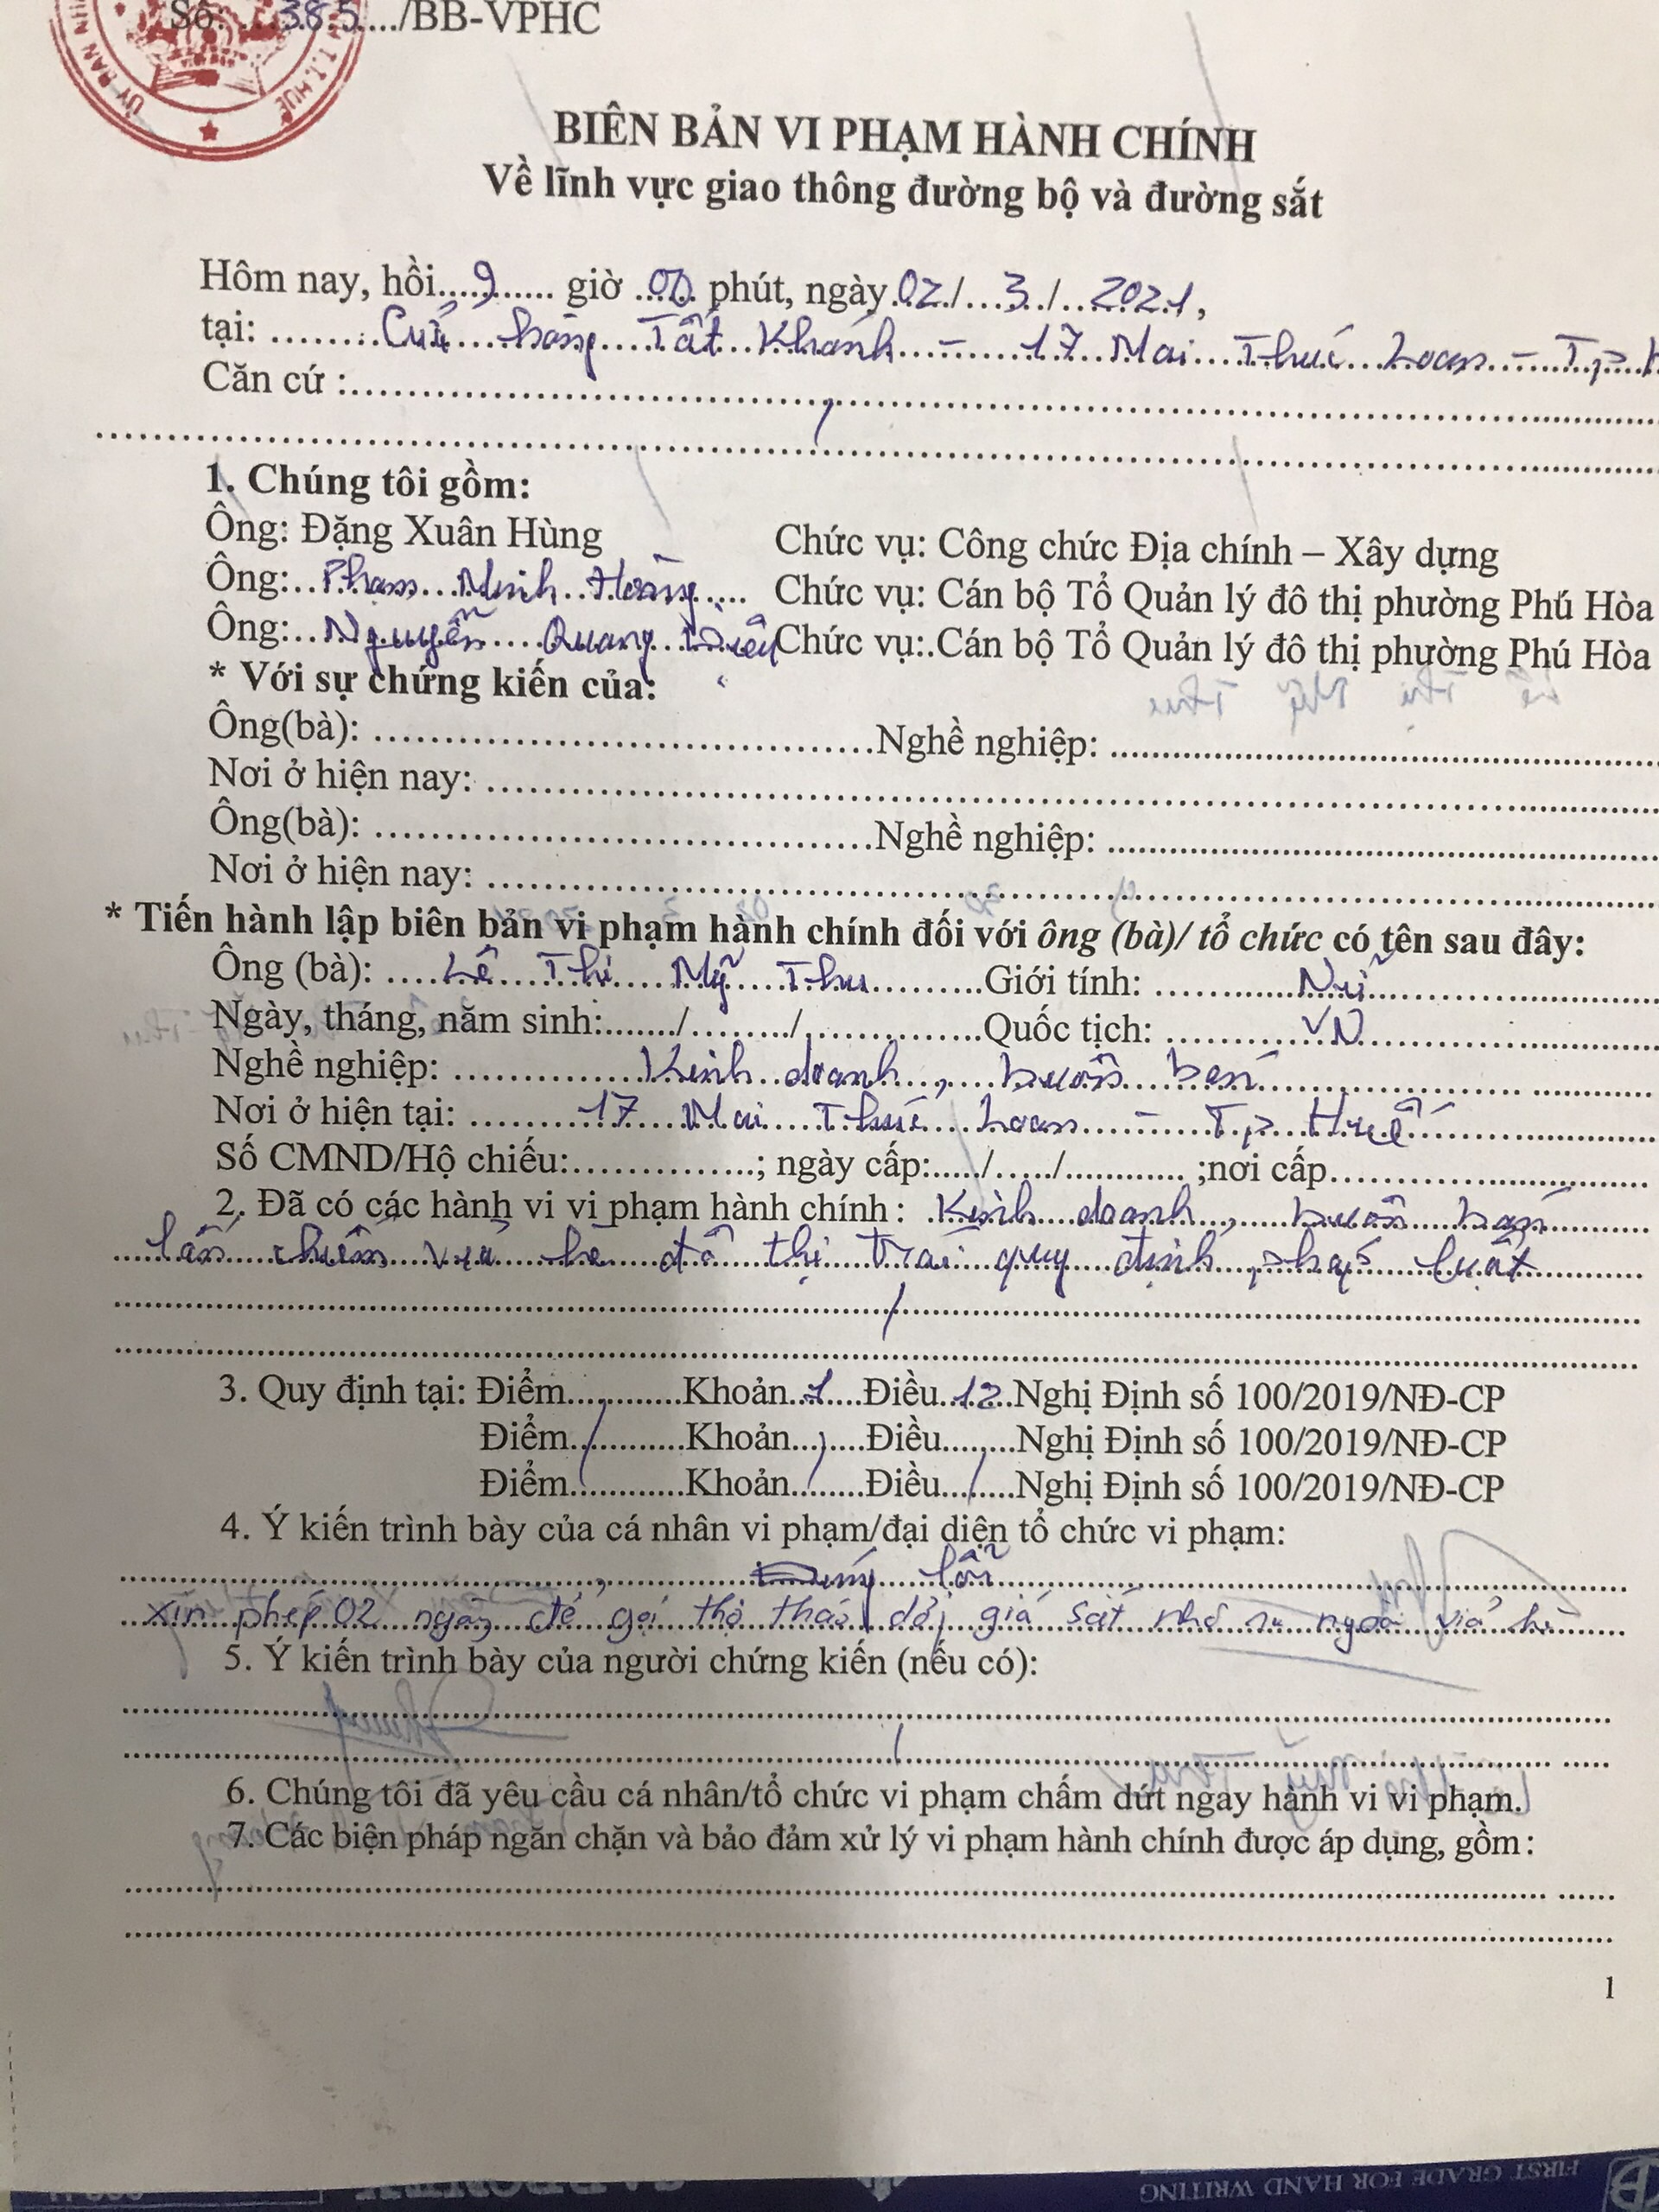 Số: ...385.../BB-VPHC
ỦY BAN T.T.HUẾ
BIÊN BẢN VI PHẠM HÀNH CHÍNH
Về lĩnh vực giao thông đường bộ và đường sắt
Hôm nay, hồi....9...... giờ ..00.. phút, ngày 02./...3../...2021,
tại: ........Cửa hàng Tất Khánh - 17 Mai Thúc Loan - Tp.
Căn cứ :
1. Chúng tôi gồm:
Ông: Đặng Xuân Hùng Chức vụ: Công chức Địa chính – Xây dựng
Ông: Phạm Minh Hoàng Chức vụ: Cán bộ Tổ Quản lý đô thị phường Phú Hòa
Ông: Nguyễn Quang Chức vụ:.Cán bộ Tổ Quản lý đô thị phường Phú Hòa
* Với sự chứng kiến của:
Ông(bà): ........ Nghề nghiệp: ........
Nơi ở hiện nay: ........
Ông(bà): ........ Nghề nghiệp: ........
Nơi ở hiện nay: ........
* Tiến hành lập biên bản vi phạm hành chính đối với ông (bà)/ tổ chức có tên sau đây:
Ông (bà): ....Lê Thị Mỹ Thu........Giới tính: ........Nữ
Ngày, tháng, năm sinh:......./......../........Quốc tịch: ........VN
Nghề nghiệp: ........Kinh doanh, buôn bán
Nơi ở hiện tại: ........17 Mai Thúc Loan - Tp Huế
Số CMND/Hộ chiếu:...............; ngày cấp:...../...../............ ;nơi cấp........
2. Đã có các hành vi vi phạm hành chính : Kinh doanh, buôn bán
lấn chiếm vỉa hè đô thị trái quy định pháp luật
3. Quy định tại: Điểm............Khoản.7...Điều..12..Nghị Định số 100/2019/NĐ-CP
Điểm............Khoản........Điều........Nghị Định số 100/2019/NĐ-CP
Điểm............Khoản........Điều........Nghị Định số 100/2019/NĐ-CP
4. Ý kiến trình bày của cá nhân vi phạm/đại diện tổ chức vi phạm:
lỗi
xin phép 02 ngày để gọi thợ tháo dỡ giá sắt nhô ra ngoài vỉa hè
5. Ý kiến trình bày của người chứng kiến (nếu có):
6. Chúng tôi đã yêu cầu cá nhân/tổ chức vi phạm chấm dứt ngay hành vi vi phạm.
7. Các biện pháp ngăn chặn và bảo đảm xử lý vi phạm hành chính được áp dụng, gồm :
1
FIRST GRADE FOR HAND WRITING